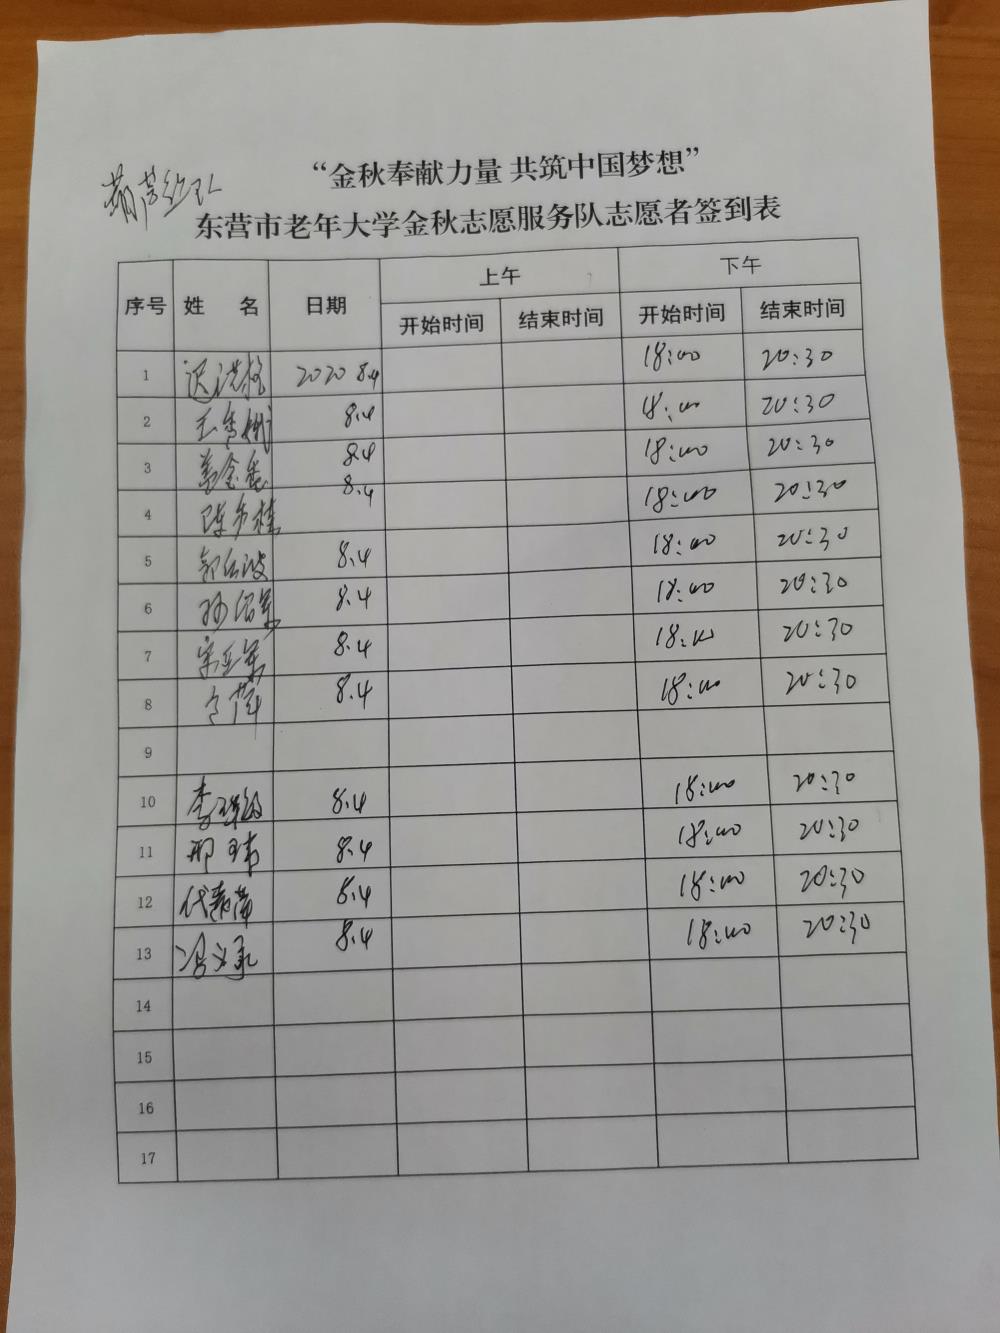 “金秋奉献力量 共筑中国梦想”
东营市老年大学金秋志愿服务队志愿者签到表
序号 姓 名 日期 上午 下午
开始时间 结束时间 开始时间 结束时间
1 迟洪格 2020 8.4 18:00 20:30
2 王秀娥 8.4 18:00 20:30
3 8.4 18:00 20:30
4 8.4 18:00 20:30
5 8.4 18:00 20:30
6 8.4 18:00 20:30
7 8.4 18:00 20:30
8 8.4 18:00 20:30
9
10 8.4 18:00 20:30
11 邢玮 8.4 18:00 20:30
12 8.4 18:00 20:30
13 8.4 18:00 20:30
14
15
16
17